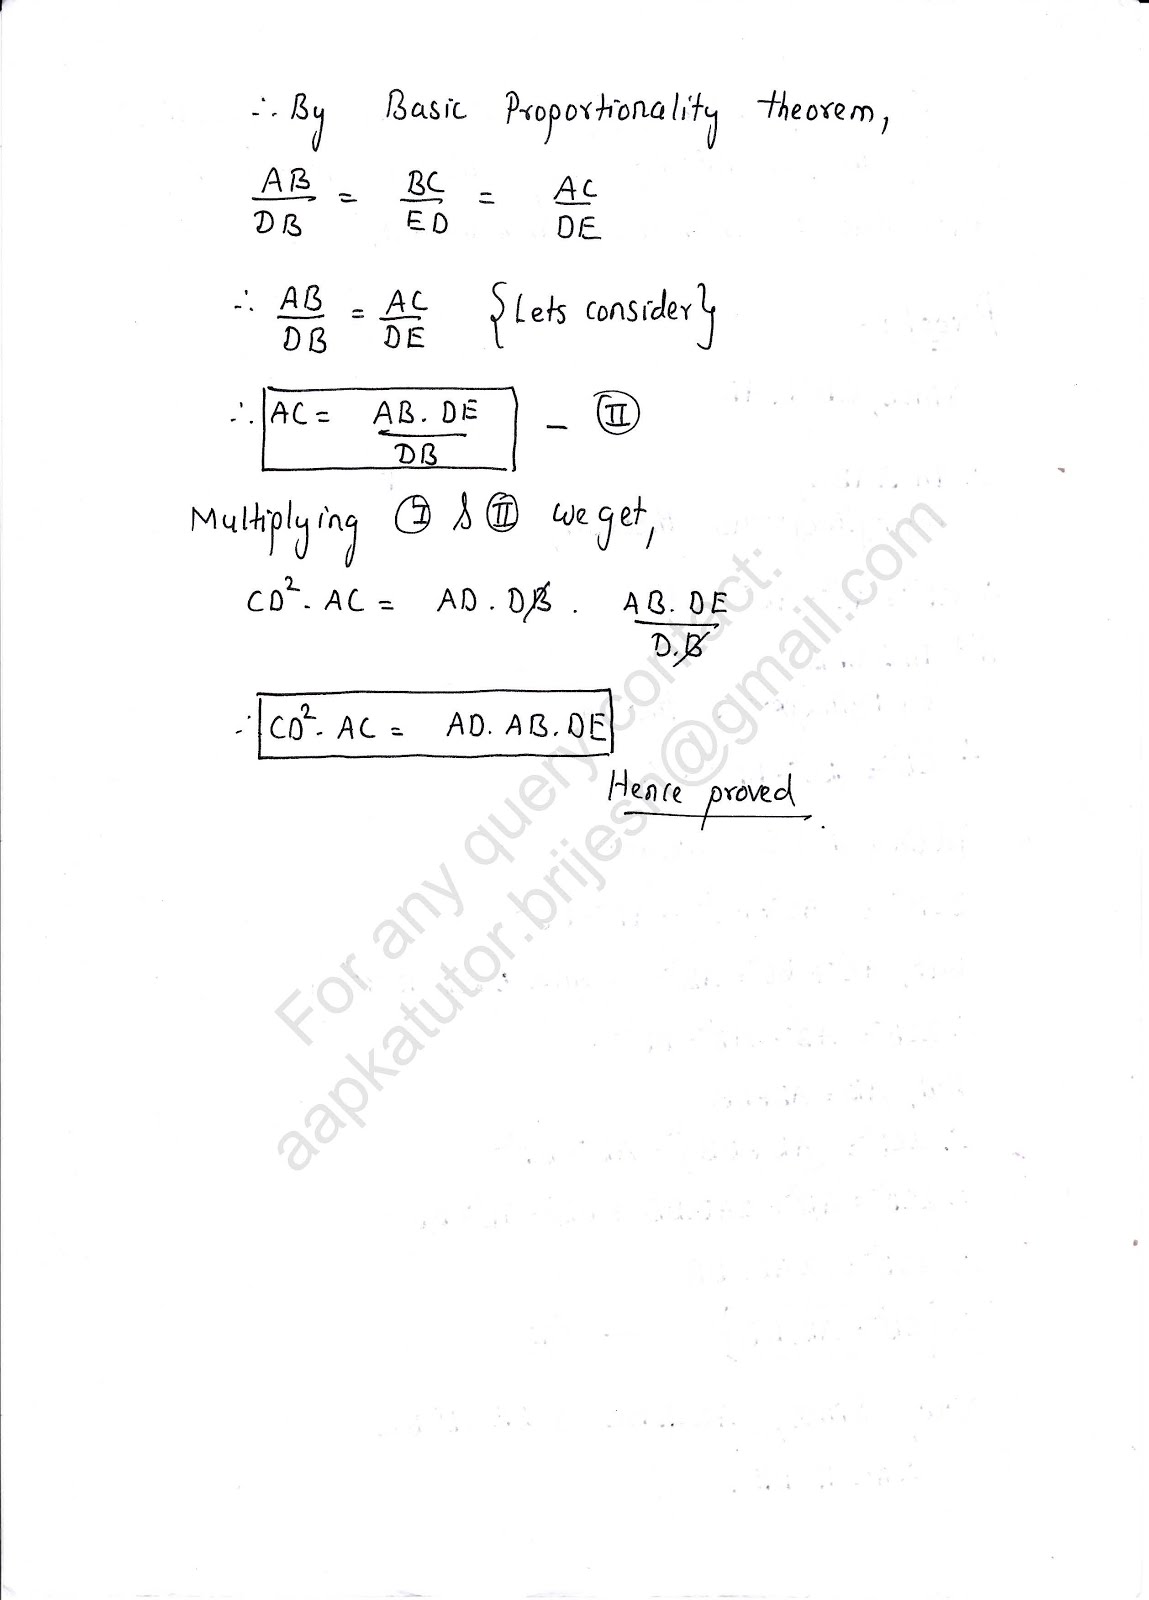 ∴ By Basic Proportionality theorem,
AB/DB = BC/ED = AC/DE
∴ AB/DB = AC/DE {Lets consider}
∴ AC = AB. DE/DB - II
Multiplying I & II we get,
CD². AC = AD. DB. AB. DE/D.B
∴ CD². AC = AD. AB. DE
Hence proved.
For any query contact:
aapkatutor.brijesh@gmail.com